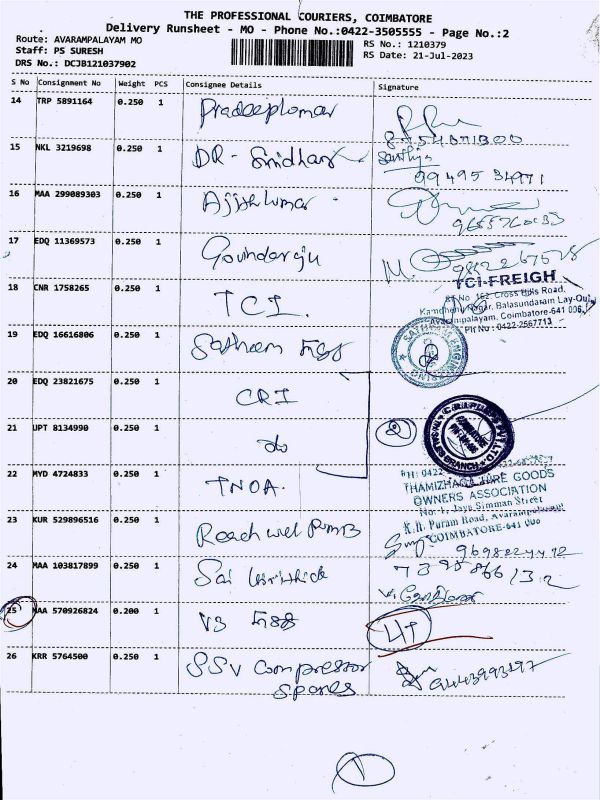 THE PROFESSIONAL COURIERS, COIMBATORE
Delivery Runsheet - MO - Phone No.:0422-3505555 - Page No.:2
Route: AVARAMPALAYAM MO
RS No.: 1210379
Staff: PS SURESH
RS Date: 21-Jul-2023
DRS No.: DCJB121037902
S No Consignment No Weight PCS Consignee Details Signature
14 TRP 5891164 0.250 1 Pradeepkumar
15 NKL 3219698 0.250 1 DR - Sridhar
99495 34971
16 MAA 299089303 0.250 1 Ajithkumar
17 EDQ 11369573 0.250 1 Govindaraju
18 CNR 1758265 0.250 1 TCI.
TCI-FREIGH
162 Cross Hills Road,
Kamdhenu Nagar, Balasundaram Lay-Out
Avarampalayam, Coimbatore-641 006
Ph No : 0422-2567713
19 EDQ 16616806 0.250 1 Satham Egg
20 EDQ 23821675 0.250 1 CRI
21 UPT 8134990 0.250 1 do
2
22 MYD 4724833 0.250 1 TNOA.
THAMIZHAGA HIRE GOODS
OWNERS ASSOCIATION
No. 1, Jaya Simman Street
K.R. Puram Road, Avarampalayam
COIMBATORE-641 006
23 KUR 529896516 0.250 1 Reach wel Pump
24 MAA 103817899 0.250 1 Sai
25 MAA 570926824 0.200 1 V3
26 KRR 5764500 0.250 1 SSV Compressor
Spares
9443993197
1